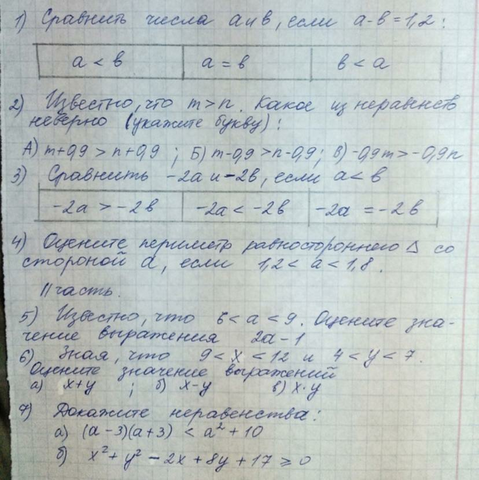 1) Сравнить числа а и в, если а-в=1,2:
а < в | а = в | в < а
2) Известно, что m>n. Какое из неравенств
неверно (укажите букву):
А) m+0,9 > n+0,9 ; Б) m-0,9 > n-0,9; В) -0,9m > -0,9n
3) Сравнить -2а и -2в, если а<в
-2а > -2в | -2а < -2в | -2а = -2в
4) Оцените периметр равностороннего Δ со
стороной а, если 1,2 < а < 1,8.
II часть.
5) Известно, что 6 < а < 9. Оцените зна-
чение выражения 2а-1
6) Зная, что 9 < x < 12 и 4 < y < 7.
Оцените значение выражений
а) x+y ; б) x-y в) x·y
7) Докажите неравенства:
а) (а-3)(а+3) < а² + 10
б) x² + y² - 2x + 8y + 17 ≥ 0